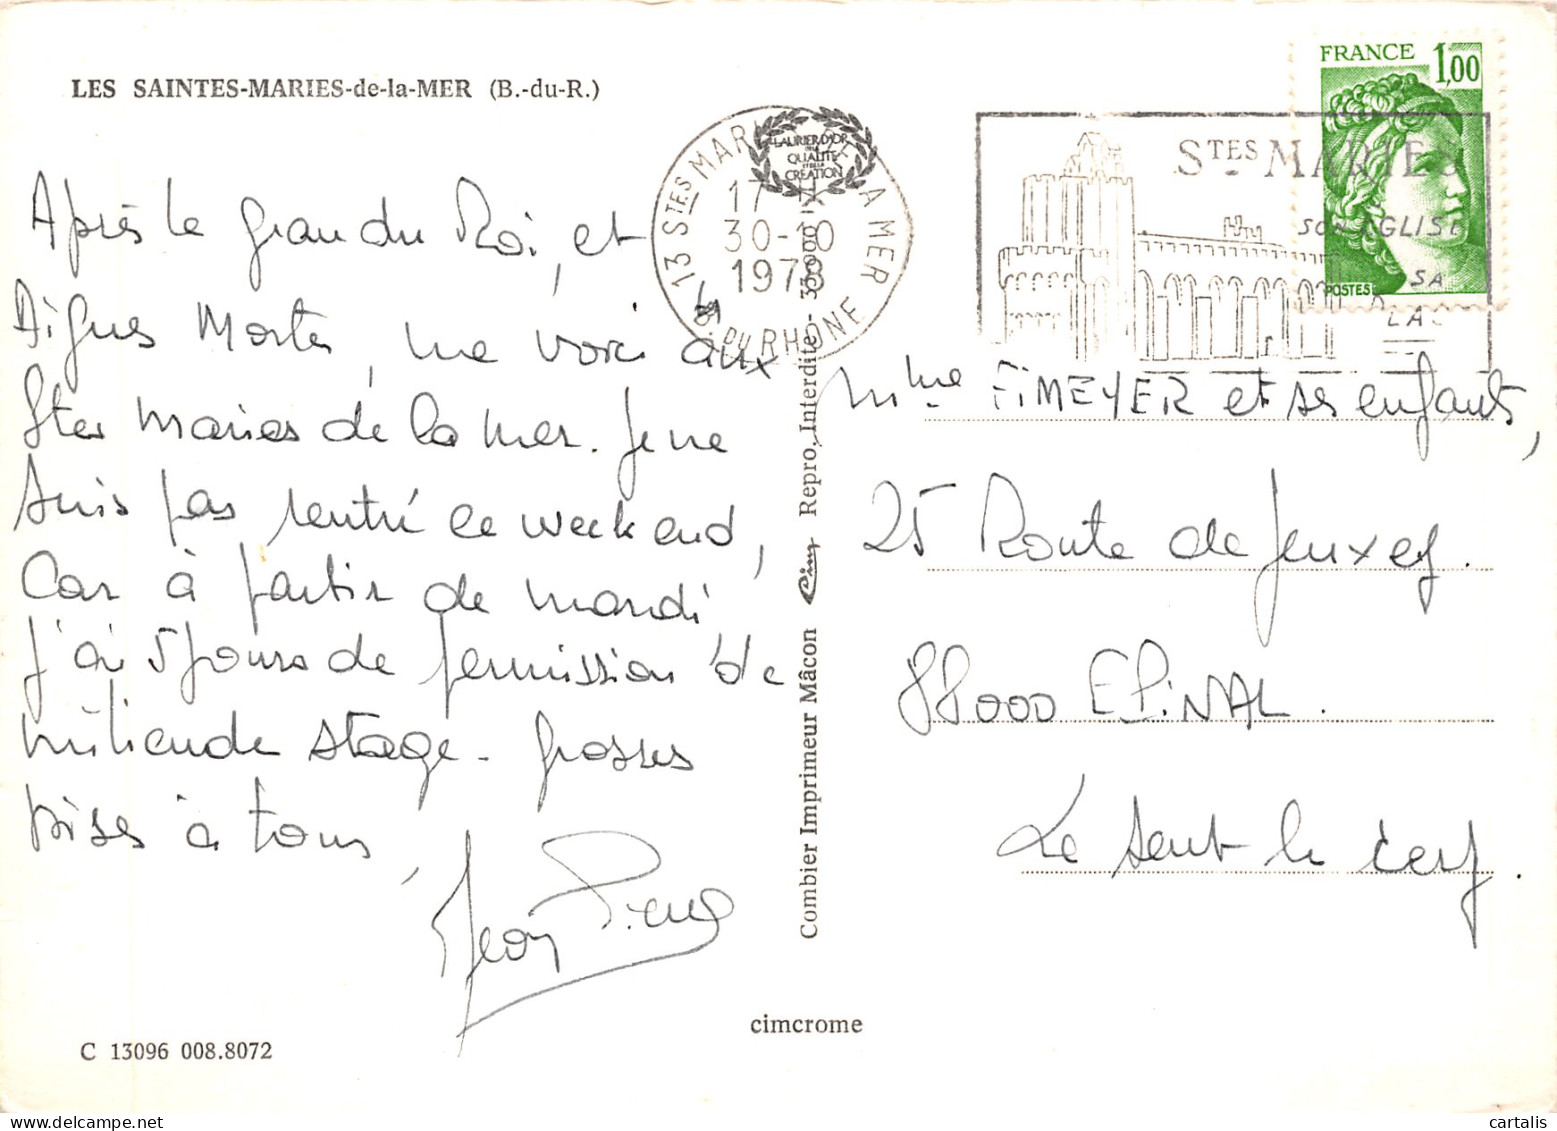 LES SAINTES-MARIES-de-la-MER (B.-du-R.)
Après le grau du Roi, et
Aigues Mortes, me voici aux
Stes Maries de la Mer. Je ne
suis pas rentré ce week end,
Car à partir de mardi
j'ai 5 jours de permission de
milieu de stage - Grosses
bises à tous,
Jean Pierre
C 13096 008.8072
cimcrome
Combier Imprimeur Mâcon Cim Repro. Interdite - 35000
LAURIER D'OR
DE LA
QUALITÉ
ET DE LA
CRÉATION
13 STES MARIES DE LA MER
17 H
30-10
1978
B. DU RHONE
STES MARIES
SON EGLISE
SA
LA
FRANCE 1,00
POSTES
Mme FIMEYER et ses enfants,
25 Route de Jeuxey.
88000 EPINAL.
Le Saut le Cerf.